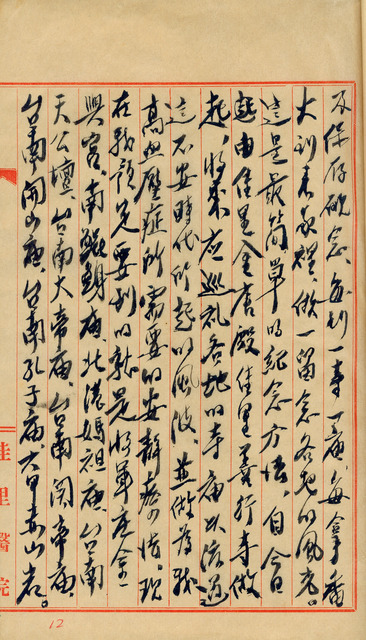 及保存紀念、每到一寺一廟、每拿香
火到來家裡、做一留念各地的風光。
這是最簡單的紀念方法、自今日
起由佳里金唐殿佳里善行寺做
起、將來應巡礼各地的寺廟以流過
這不安時代所起的風波、並做為我
高血壓症所需要的安靜療法。現
在我預先要到的就是將軍庄金
興宮、南鯤鯓廟、北港媽祖廟、台南
天公壇、台南大帝廟、台南関帝廟、
台南開山廟、台南孔子廟大甲赤山岩。
佳里醫院
12